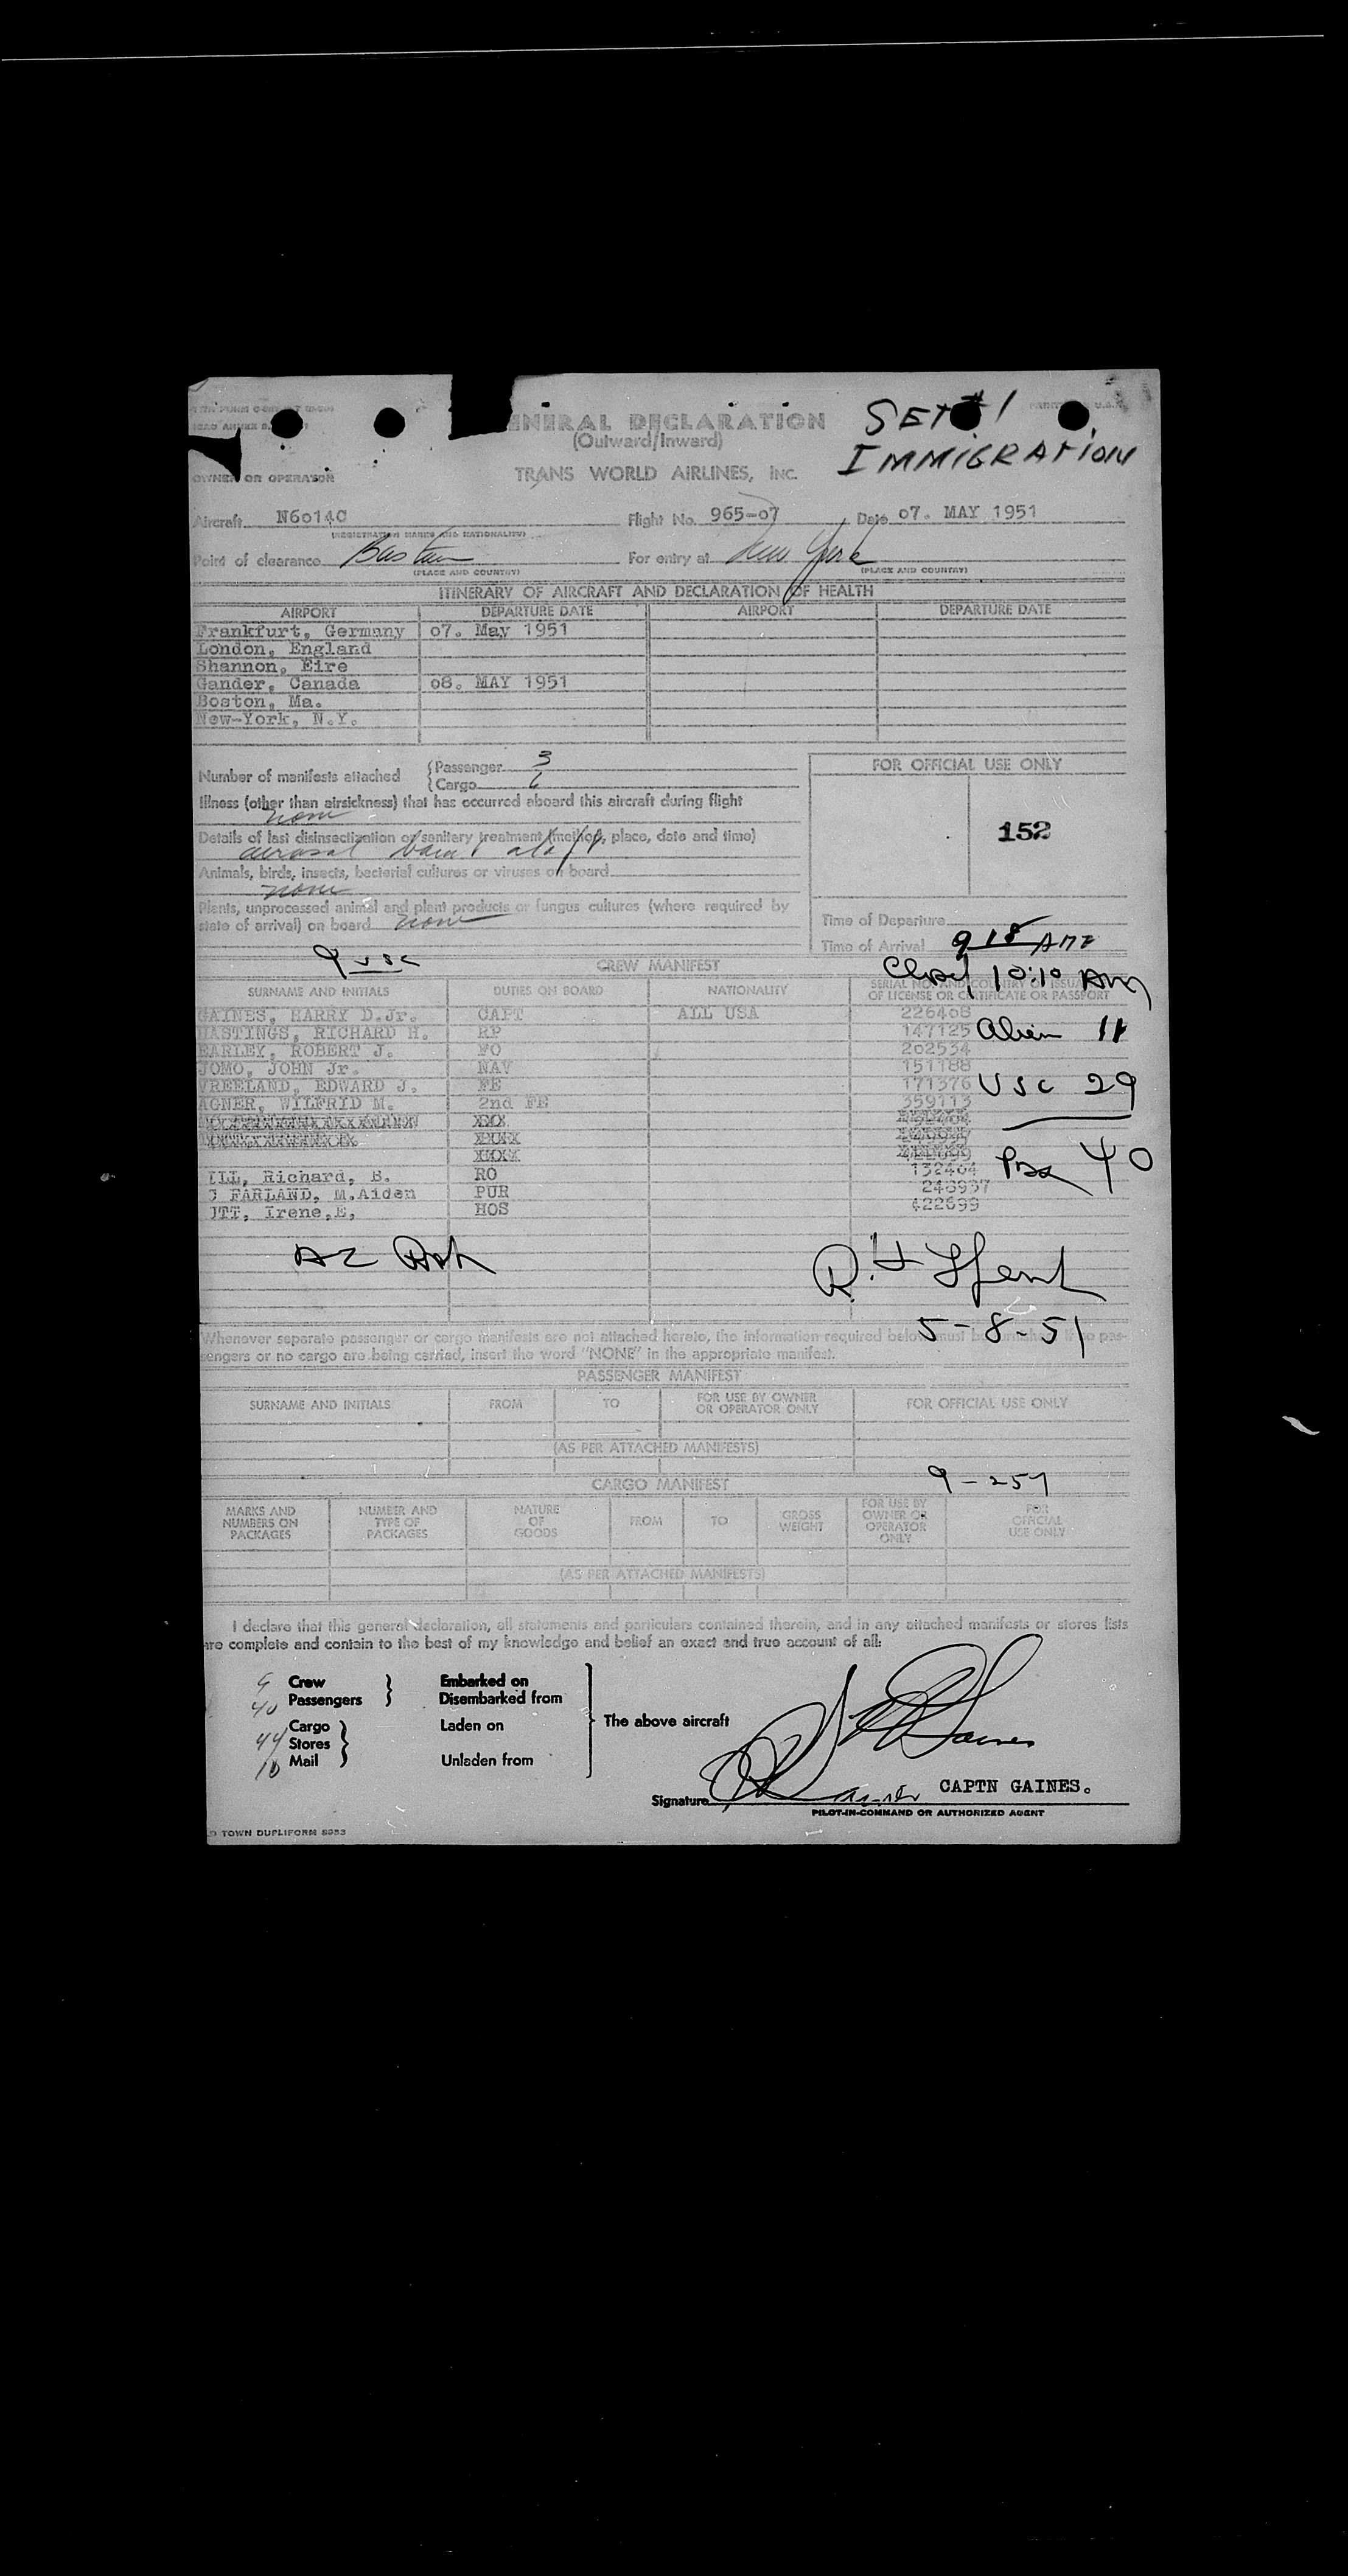 SET #1
IMMIGRATION
NERAL DECLARATION
(Outward/Inward)
OWNER OR OPERATOR
TRANS WORLD AIRLINES, INC.
Aircraft N6014C Flight No. 965-07 Date 07. MAY 1951
(REGISTRATION MARKS AND NATIONALITY)
Point of clearance Boston For entry at New York
(PLACE AND COUNTRY) (PLACE AND COUNTRY)
ITINERARY OF AIRCRAFT AND DECLARATION OF HEALTH
AIRPORT DEPARTURE DATE AIRPORT DEPARTURE DATE
Frankfurt, Germany 07. May 1951
London, England
Shannon, Eire
Gander, Canada 08. MAY 1951
Boston, Ma.
New-York, N.Y.
Number of manifests attached
Passenger 3
Cargo 6
FOR OFFICIAL USE ONLY
152
Illness (other than airsickness) that has occurred aboard this aircraft during flight
none
Details of last disinsectization or sanitary treatment (method, place, date and time)
aerosol
Animals, birds, insects, bacterial cultures or viruses on board
none
Plants, unprocessed animal and plant products or fungus cultures (where required by
state of arrival) on board none
Time of Departure
Time of Arrival 918 AM
9 USC
CREW MANIFEST
10:10 AM
SURNAME AND INITIALS DUTIES ON BOARD NATIONALITY SERIAL NO. AND COUNTRY OF ISSUE OF LICENSE OR CERTIFICATE OR PASSPORT
GAINES, HARRY D.Jr. CAPT ALL USA 226408
HASTINGS, RICHARD H. RP 147125
Alien 11
EARLEY, ROBERT J. FO 202534
JOMO, JOHN Jr. NAV 151188
VREELAND, EDWARD J. FE 171376
USC 29
AGNER, WILFRID M. 2nd FE 359113
XXX
XXXX
XXXX
ILL, Richard, B. RO 132464
Pax 40
FARLAND, M.Aiden PUR 248937
UTT, Irene,E, HOS 422699
5-8-51
Whenever separate passenger or cargo manifests are not attached hereto, the information required below must be pas-
sengers or no cargo are being carried, insert the word "NONE" in the appropriate manifest.
PASSENGER MANIFEST
SURNAME AND INITIALS FROM TO FOR USE BY OWNER OR OPERATOR ONLY FOR OFFICIAL USE ONLY
(AS PER ATTACHED MANIFESTS)
9-257
CARGO MANIFEST
MARKS AND NUMBERS ON PACKAGES NUMBER AND TYPE OF PACKAGES NATURE OF GOODS FROM TO GROSS WEIGHT FOR USE BY OWNER OR OPERATOR ONLY FOR OFFICIAL USE ONLY
(AS PER ATTACHED MANIFESTS)
I declare that this general declaration, all statements and particulars contained therein, and in any attached manifests or stores lists
are complete and contain to the best of my knowledge and belief an exact and true account of all:
9 Crew Embarked on
40 Passengers Disembarked from
Cargo Laden on The above aircraft
44 Stores
10 Mail Unladen from
Signature CAPTN GAINES.
PILOT-IN-COMMAND OR AUTHORIZED AGENT
TOWN DUPLIFORM